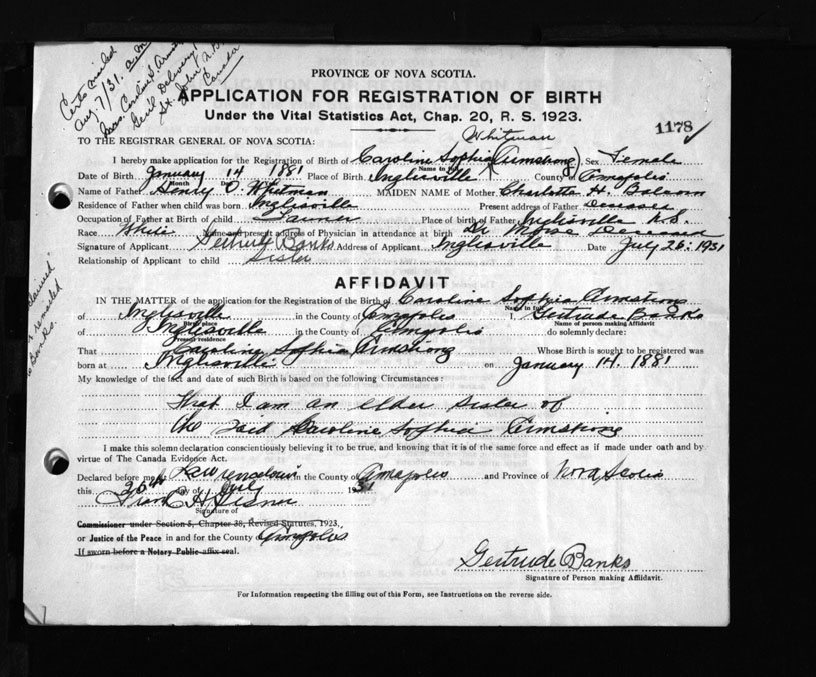 Certs mailed
Aug. 7/31.
Mrs. Caroline S. Arms
Genl Delivery
St. John N.B.
Canada
PROVINCE OF NOVA SCOTIA.
APPLICATION FOR REGISTRATION OF BIRTH
Under the Vital Statistics Act, Chap. 20, R. S. 1923.
1178
TO THE REGISTRAR GENERAL OF NOVA SCOTIA:
Whitman
I hereby make application for the Registration of Birth of Caroline Sophia (Armstrong) Sex Female
Name in full
Date of Birth January 14 1881 Place of Birth Inglisville County of Annapolis
Month
Name of Father Henry Whitman MAIDEN NAME of Mother Charlotte H. Balcom
Residence of Father when child was born Inglisville Present address of Father Deceased
Occupation of Father at Birth of child Farmer Place of birth of Father Inglisville N.S.
Race White Name and present address of Physician in attendance at birth Dr Morse Deceased
Signature of Applicant Gertrude Banks Address of Applicant Inglisville Date July 26: 1931
Relationship of Applicant to child Sister
AFFIDAVIT
IN THE MATTER of the application for the Registration of the Birth of Caroline Sophia Armstrong
Name in full
of Inglisville in the County of Annapolis I, Gertrude Banks
Birth place
Name of person making Affidavit
of Inglisville in the County of Annapolis do solemnly declare:
Present residence
That Caroline Sophia Armstrong Whose Birth is sought to be registered was
born at Inglisville on January 14. 1881
My knowledge of the fact and date of such Birth is based on the following Circumstances:
That I am an elder sister of
the said Caroline Sophia Armstrong
I make this solemn declaration conscientiously believing it to be true, and knowing that it is of the same force and effect as if made under oath and by
virtue of The Canada Evidence Act.
Declared before me at Lawrencetown in the County of Annapolis and Province of Nova Scotia
this 26th day of July 1931
Signature of
Commissioner under Section 5, Chapter 38, Revised Statutes, 1923.,
or Justice of the Peace in and for the County of Annapolis
If sworn before a Notary Public affix seal.
Gertrude Banks
Signature of Person making Affidavit.
For Information respecting the filling out of this Form, see Instructions on the reverse side.